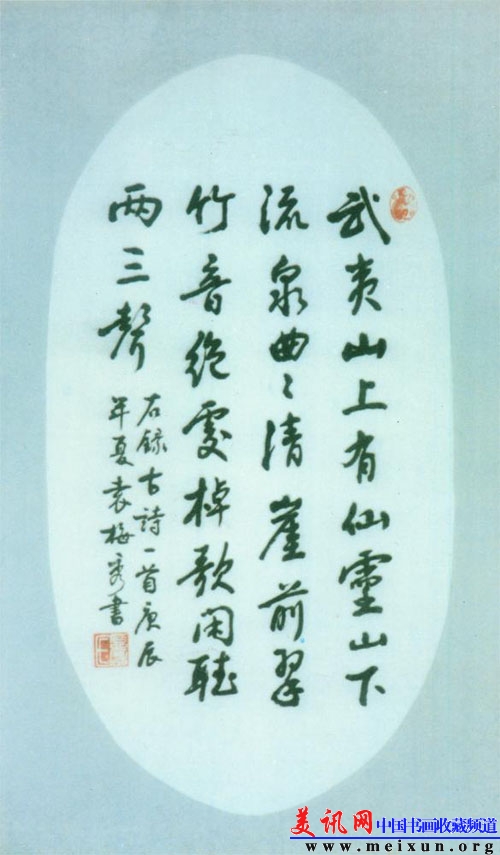 武夷山上有仙靈山下
流泉曲〻清崖前翠
竹音绝處棹歌闲聴
两三聲
右録古詩一首庚辰
年夏袁梅秀書
美讯网中国书画收藏频道
www.meixun.org